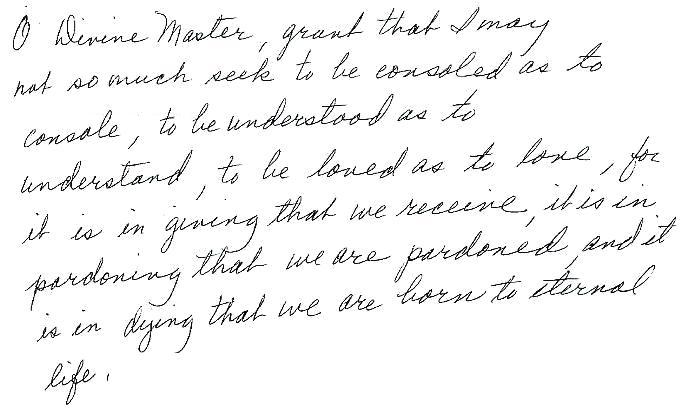 O Divine Master, grant that I may
not so much seek to be consoled as to
console, to be understood as to
understand, to be loved as to love, for
it is in giving that we receive, it is in
pardoning that we are pardoned, and it
is in dying that we are born to eternal
life.